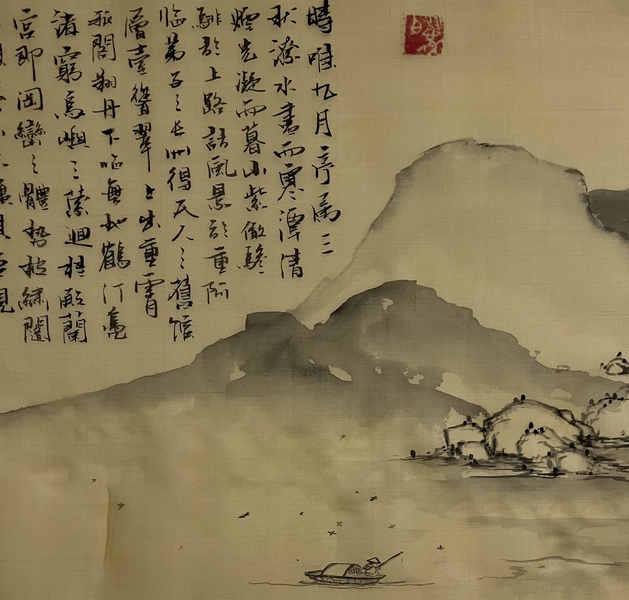 時唯九月序屬三
秋潦水盡而寒潭清
煙光凝而暮山紫儼驂
騑於上路訪風景於重阿
臨帝子之長洲得天人之舊館
層臺聳翠上出重霄
飛閣翔丹下臨無地鶴汀鳧
渚窮島嶼之縈迴桂殿蘭
宮即岡巒之體勢披繡闥